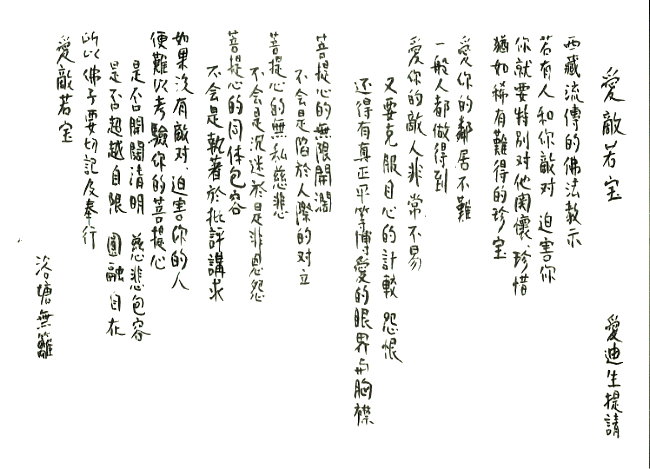 愛敵若宝
愛迪生提請
西藏流傳的佛法教示
若有人和你敵对 迫害你
你就要特別对他関懷、珍惜
猶如稀有難得的珍宝
愛你的鄰居不難
一般人都做得到
愛你的敵人非常不易
又要克服自心的計較 怨恨
还得有真正平等博愛的眼界与胸襟
菩提心的無限開濶
不会是陷於人際的对立
菩提心的無私慈悲
不会是沉迷於是非恩怨
菩提心的同体包容
不会是執著於批評講求
如果没有敵对、迫害你的人
便難以考驗你的菩提心
是否開闊清明 慈悲包容
是否超越自限 圓融自在
所以佛子要切記及奉行
愛敵若宝
洛塘無籬